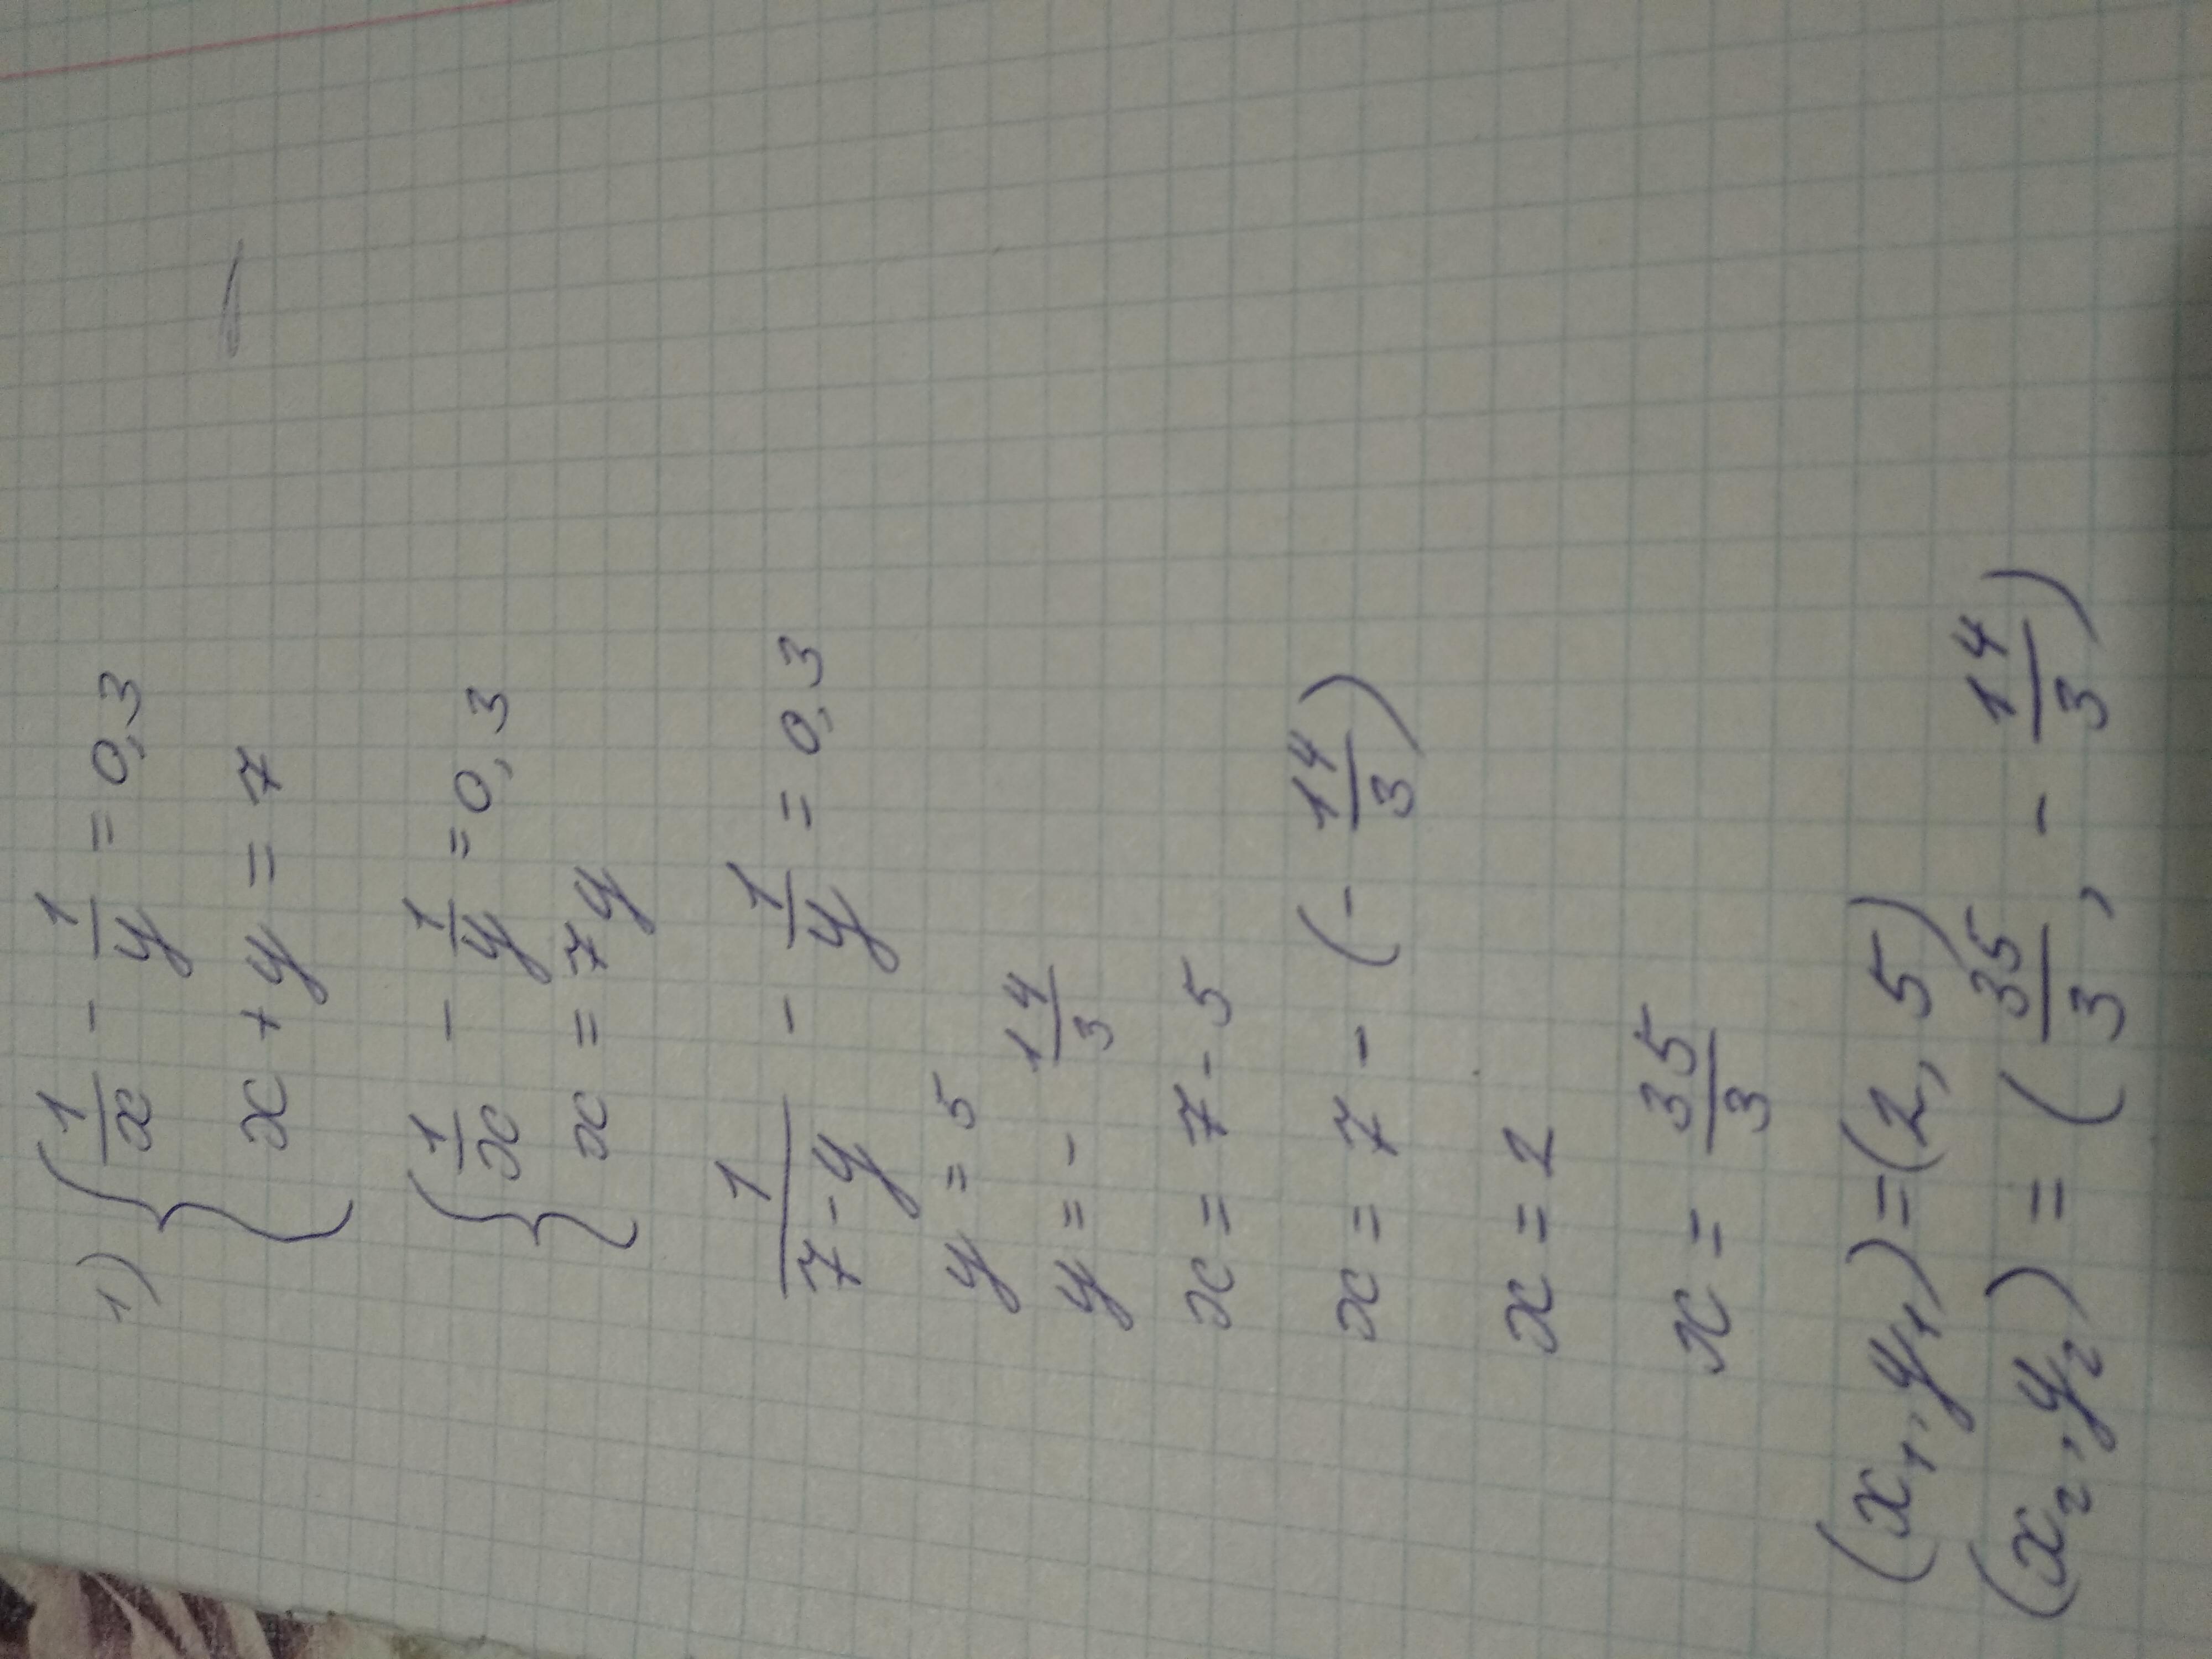 1) { 1/x - 1/y = 0,3
x + y = 7
{ 1/x - 1/y = 0,3
x = 7 y
1/(7-y) - 1/y = 0,3
y = 5
y = - 14/3
x = 7 - 5
x = 7 - (- 14/3)
x = 2
x = 35/3
(x₁, y₁) = (2, 5)
(x₂, y₂) = (35/3, - 14/3)